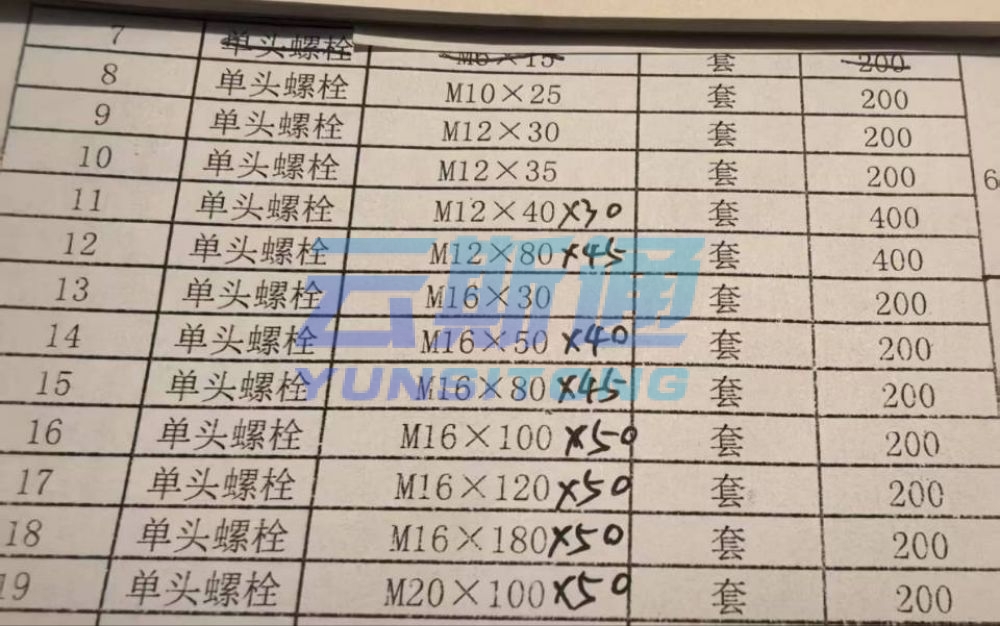 7 单头螺栓 M6×15 套 200
8 单头螺栓 M10×25 套 200
9 单头螺栓 M12×30 套 200
10 单头螺栓 M12×35 套 200
6
11 单头螺栓 M12×40×30 套 400
12 单头螺栓 M12×80×45 套 400
13 单头螺栓 M16×30 套 200
14 单头螺栓 M16×50×40 套 200
15 单头螺栓 M16×80×45 套 200
16 单头螺栓 M16×100×50 套 200
17 单头螺栓 M16×120×50 套 200
18 单头螺栓 M16×180×50 套 200
19 单头螺栓 M20×100×50 套 200
云斯通
YUNSITONG